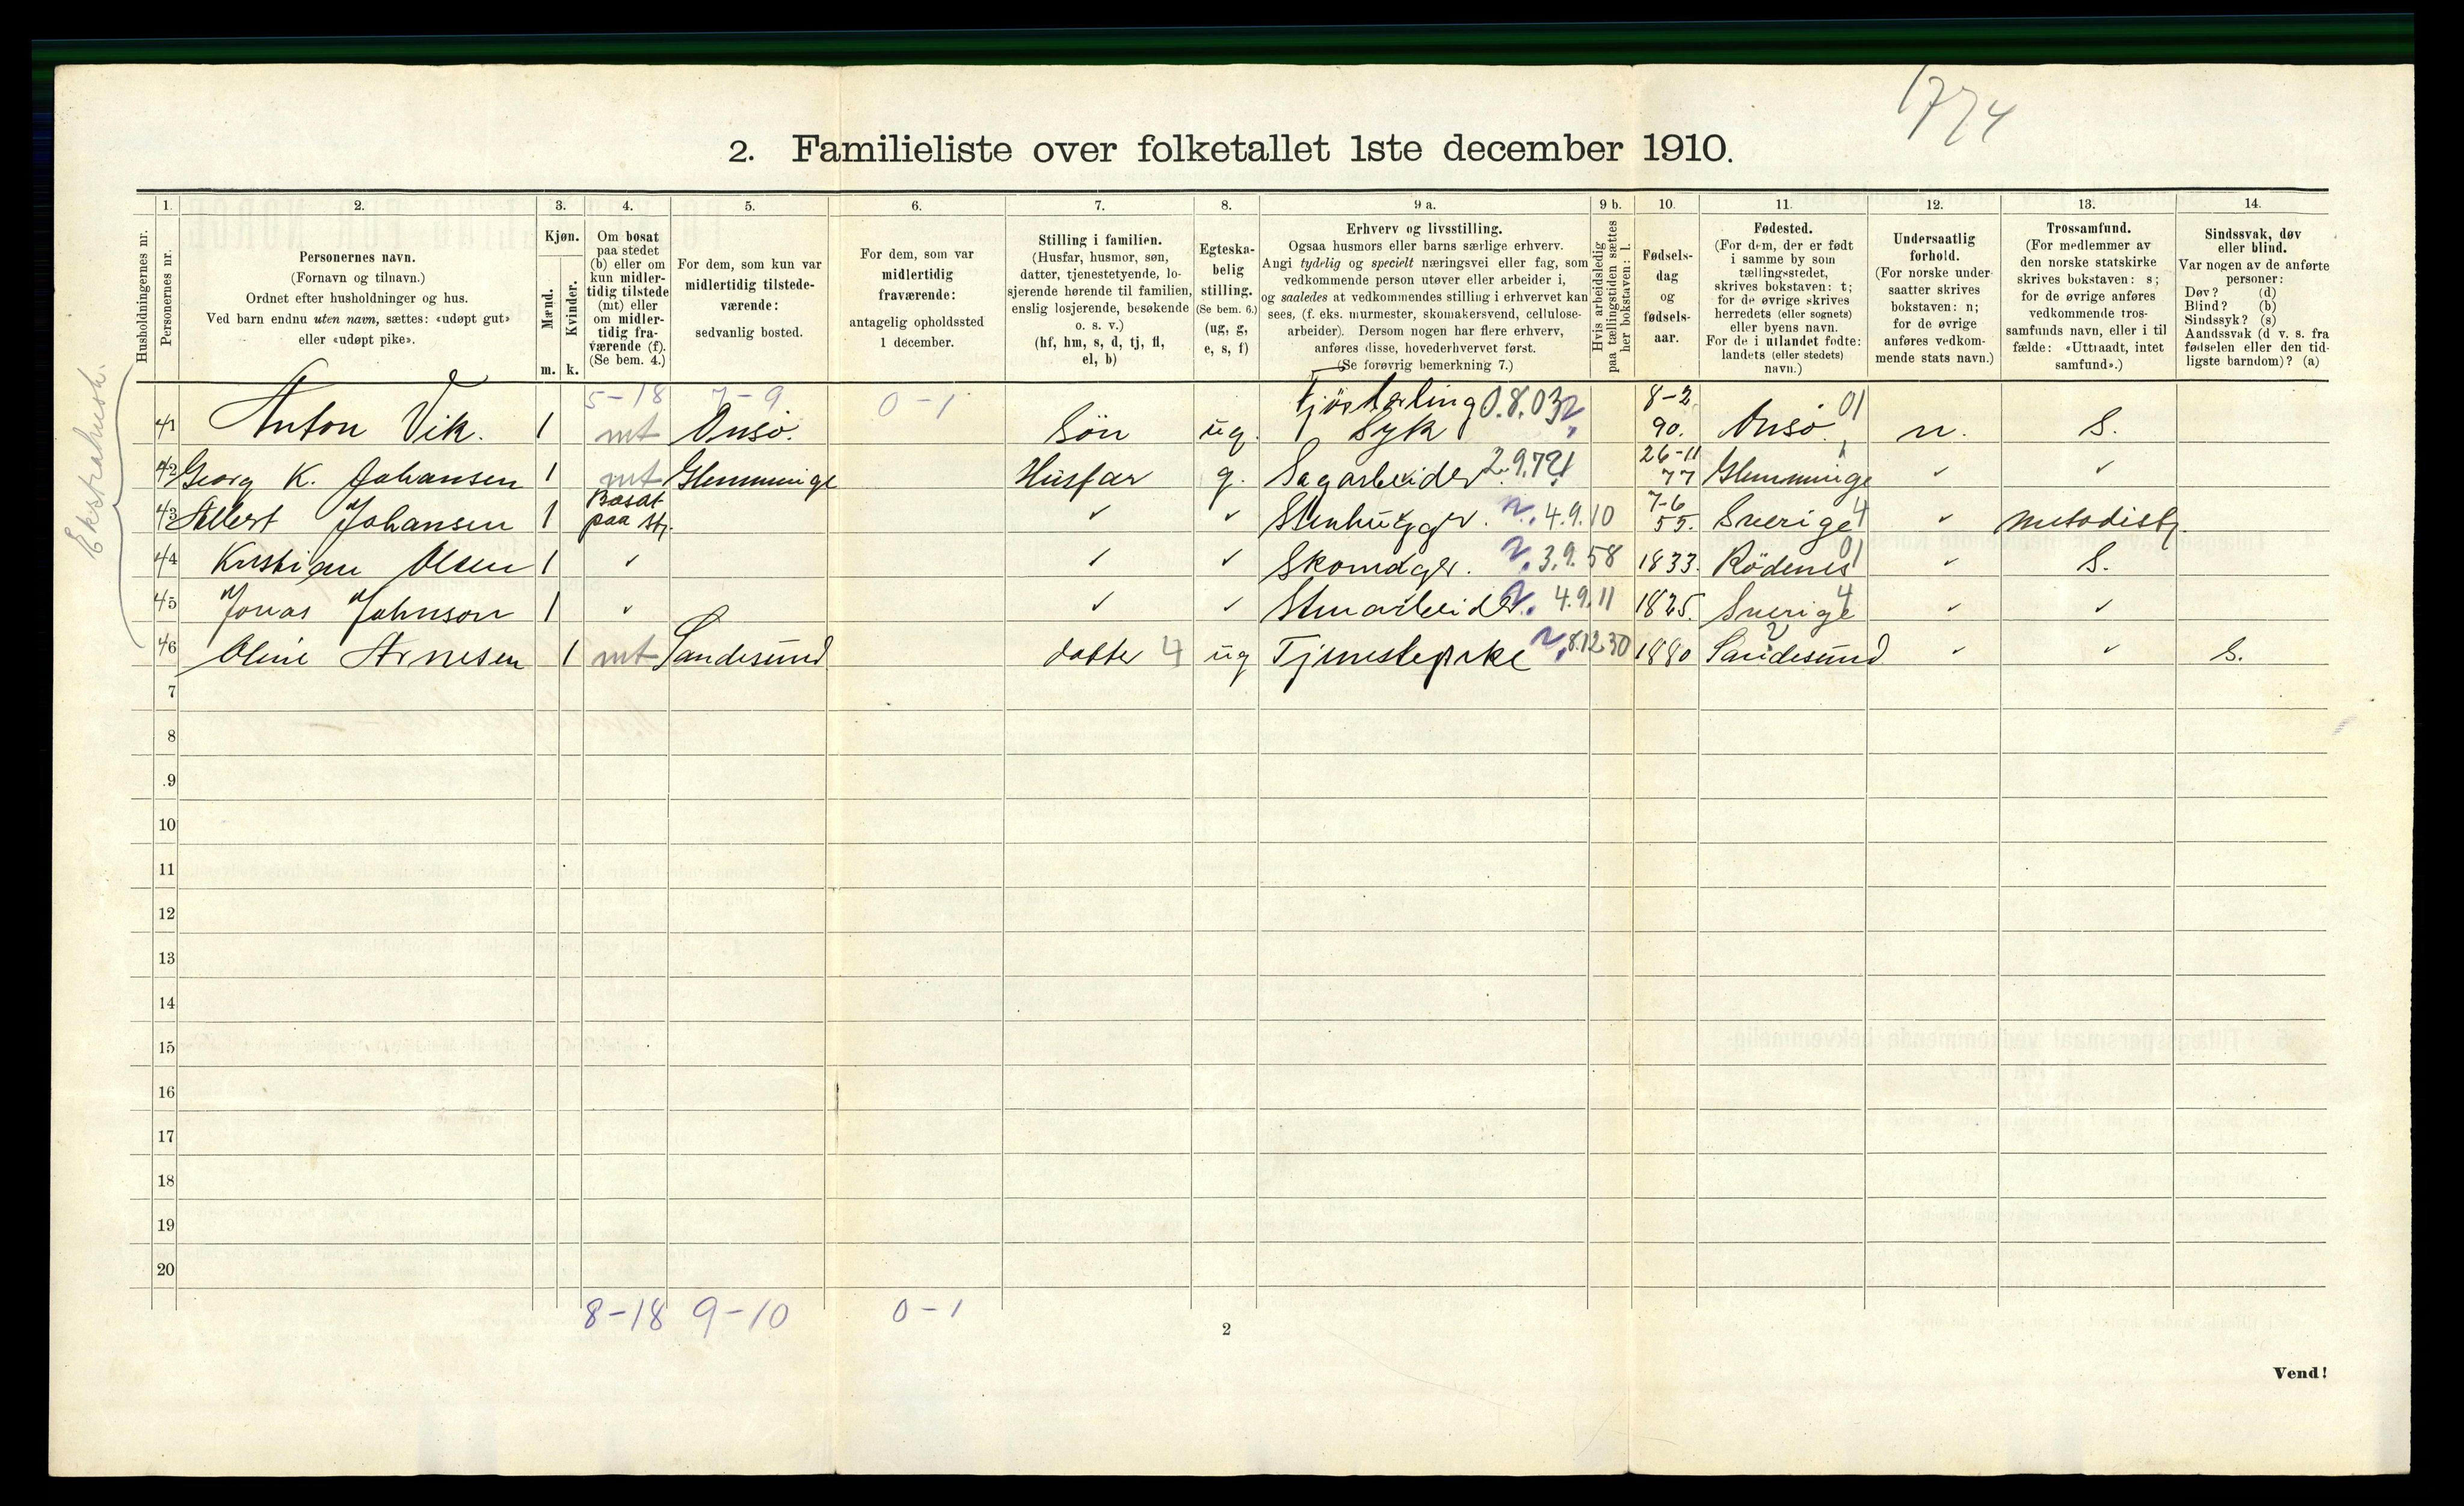 1774
2. Familieliste over folketallet 1ste december 1910.
1. 2. 3. 4. 5. 6. 7. 8. 9 a. 9 b. 10. 11. 12. 13. 14.
Husholdningernes nr.
Personernes nr.
Personernes navn.
(Fornavn og tilnavn.)
Ordnet efter husholdninger og hus.
Ved barn endnu uten navn, sættes: «udøpt gut»
eller «udøpt pike».
Kjøn.
Mænd.
Kvinder.
m. k.
Om bosat
paa stedet
(b) eller om
kun midler-
tidig tilstede
(mt) eller
om midler-
tidig fra-
værende (f).
(Se bem. 4.)
For dem, som kun var
midlertidig tilstede-
værende:
sedvanlig bosted.
For dem, som var
midlertidig
fraværende:
antagelig opholdssted
1 december.
Stilling i familien.
(Husfar, husmor, søn,
datter, tjenestetyende, lo-
sjerende hørende til familien,
enslig losjerende, besøkende
o. s. v.)
(hf, hm, s, d, tj, fl,
el, b)
Egteska-
belig
stilling.
(Se bem. 6.)
(ug, g,
e, s, f)
Erhverv og livsstilling.
Ogsaa husmors eller barns særlige erhverv.
Angi tydelig og specielt næringsvei eller fag, som
vedkommende person utøver eller arbeider i,
og saaledes at vedkommendes stilling i erhvervet kan
sees, (f. eks. murmester, skomakersvend, cellulose-
arbeider). Dersom nogen har flere erhverv,
anføres disse, hovederhvervet først.
(Se forøvrig bemerkning 7.)
Hvis arbeidsledig
paa tællingstiden sættes
her bokstaven: l.
Fødsels-
dag
og
fødsels-
aar.
Fødested.
(For dem, der er født
i samme by som
tællingsstedet,
skrives bokstaven: t;
for de øvrige skrives
herredets (eller sognets)
eller byens navn.
For de i utlandet fødte:
landets (eller stedets)
navn.)
Undersaatlig
forhold.
(For norske under-
saatter skrives
bokstaven: n;
for de øvrige
anføres vedkom-
mende stats navn.)
Trossamfund.
(For medlemmer av
den norske statskirke
skrives bokstaven: s;
for de øvrige anføres
vedkommende tros-
samfunds navn, eller i til
fælde: «Uttraadt, intet
samfund».)
Sindssvak, døv
eller blind.
Var nogen av de anførte
personer:
Døv? (d)
Blind? (b)
Sindssyk? (s)
Aandssvak (d v. s. fra
fødselen eller den tid-
ligste barndom)? (a)
Ekstrahush.
5-18 7-9 0-1
41 Anton Vik. 1 mt Onsö. Sön ug. Syk 0.8.03 8-2 90. Onsö. 01 n. S.
42 Georg K. Johansen 1 mt Glemminge Husfar g. Sagarbeider 2.9.72 26-11 77 Glemminge ✓ ✓
43 Albert Johansen 1 Bosat paa St. ✓ ✓ Stenhugger. 4.9.10 7-6 55. Sverige 4 ✓ metodistf.
44 Kristian Olsen 1 ✓ ✓ ✓ Skomager. 3.9.58 1833. Rödenes 01 ✓ S.
45 Jonas Johnson 1 ✓ ✓ ✓ Stenarbeider. 4.9.11 1825. Sverige 4 ✓ ✓
46 Oline Arnesen 1 mt Sandesund datter 4 ug Tjenestepike 8.12.30 1880 Sandesund 2 ✓ ✓ S.
7
8
9
10
11
12
13
14
15
16
17
18
19
20
8-18 9-10 0-1
2
Vend!